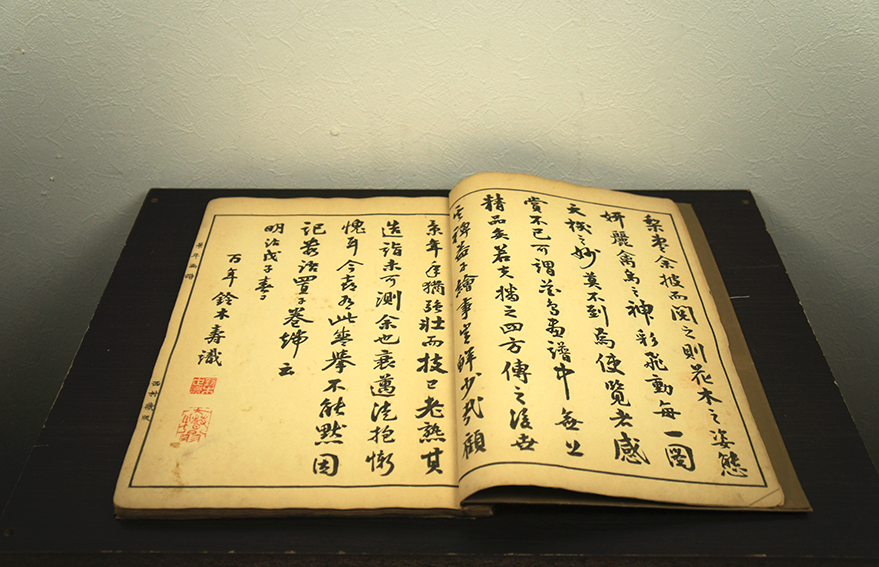 梨棗余披而閲之則花木之姿態
妍麗禽鳥之神彩飛動每一圖
天機之妙莫不到焉使覽者感
賞不已可謂花鳥畫譜中無上
精品矣若夫播之四方傳之後世
其裨益于繪事豈鮮少哉顧
景年年猶強壯而技已老熟其
造詣未可測余也衰邁徒抱慚
愧耳今喜有此擧不能默因
記數語置于卷端云
明治戊子春
百年鈴木壽識
景年畫譜